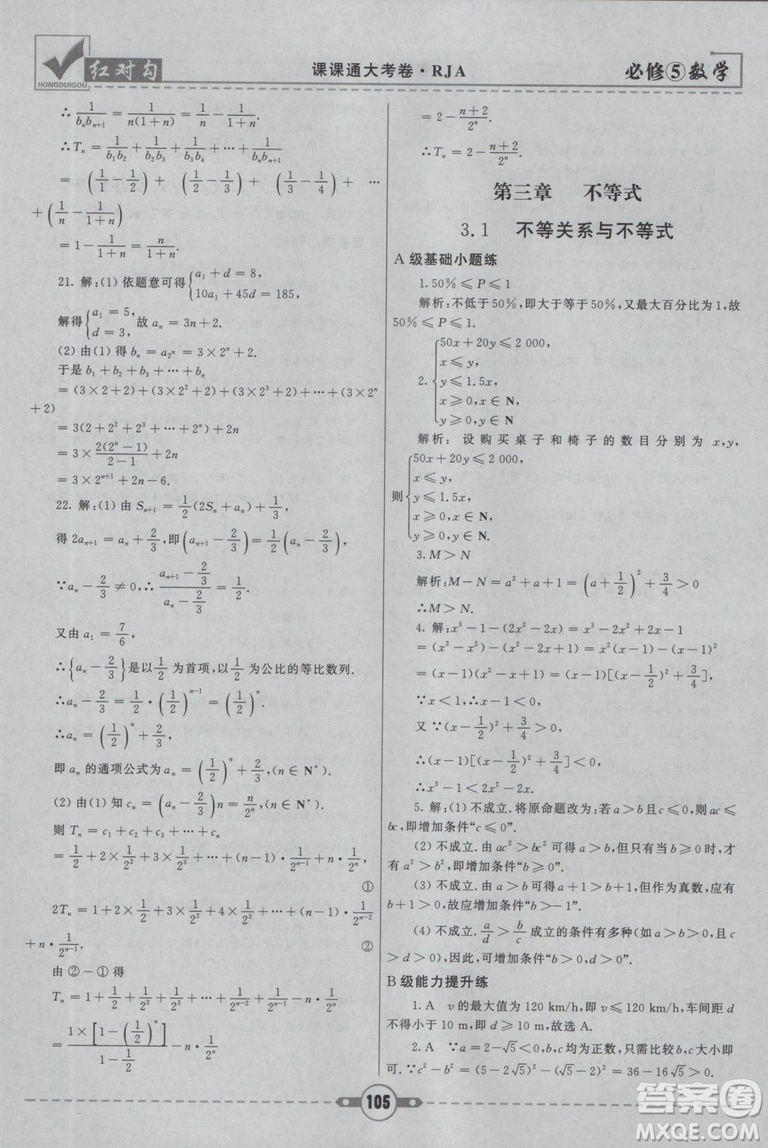 HONGDUIGOU
红对勾
课课通大考卷·RJA
必修⑤数学
∴1/(bₙbₙ₊₁)=1/(n(1+n))=1/n-1/(1+n).
∴Tₙ=1/(b₁b₂)+1/(b₂b₃)+1/(b₃b₄)+⋯+1/(bₙbₙ₊₁)
=(1/1-1/2)+(1/2-1/3)+(1/3-1/4)+⋯
+(1/n-1/(1+n))
=1-1/(1+n)=n/(1+n).
21. 解:(1) 依题意可得{a₁+d=8, 10a₁+45d=185,
解得{a₁=5, d=3, 故 aₙ=3n+2.
(2) 由(1) 得 bₙ=a₂ⁿ=3×2ⁿ+2.
于是 b₁+b₂+b₃+⋯+bₙ
=(3×2+2)+(3×2²+2)+(3×2³+2)+⋯+(3×2ⁿ
+2)
=3(2+2²+2³+⋯+2ⁿ)+2n
=3×2(2ⁿ-1)/(2-1)+2n
=3×2ⁿ⁺¹+2n-6.
22. 解:(1) 由 Sₙ₊₁=1/2(2Sₙ+aₙ)+1/3,
得 2aₙ₊₁=aₙ+2/3,即(aₙ₊₁-2/3)=1/2(aₙ-2/3).
∵aₙ-2/3≠0,∴(aₙ₊₁-2/3)/(aₙ-2/3)=1/2.
又由 a₁=7/6,
∴{aₙ-2/3}是以1/2为首项,1/2为公比的等比数列.
∴aₙ-2/3=1/2·(1/2)ⁿ⁻¹=(1/2)ⁿ.
∴aₙ=(1/2)ⁿ+2/3,
即 aₙ 的通项公式为 aₙ=(1/2)ⁿ+2/3,(n∈N*).
(2) 由(1) 知 cₙ=(aₙ-2/3)n=n/2ⁿ,(n∈N*).
则 Tₙ=c₁+c₂+c₃+⋯+cₙ
=1×1/2+2×1/2²+3×1/2³+⋯+(n-1)·1/2ⁿ⁻¹+n·1/2ⁿ,
①
2Tₙ=1+2×1/2+3×1/2²+4×1/2³+⋯+(n-1)·1/2ⁿ⁻²
+n·1/2ⁿ⁻¹. ②
由 ②-① 得
Tₙ=1+1/2+1/2²+1/2³+⋯+1/2ⁿ⁻¹-n·1/2ⁿ
=1×[1-(1/2)ⁿ]/(1-1/2)-n/2ⁿ
=2-(n+2)/2ⁿ.
∴Tₙ=2-(n+2)/2ⁿ.
第三章 不等式
3.1 不等关系与不等式
A 级基础小题练
1. 50%≤P≤1
解析:不低于 50%,即大于等于 50%,又最大百分比为 1,故
50%≤P≤1.
2. {50x+20y≤2 000,
x≤y,
y≤1.5x,
x≥0,x∈N,
y≥0,y∈N
解析:设购买桌子和椅子的数目分别为 x,y,
则{50x+20y≤2 000,
x≤y,
y≤1.5x,
x≥0,x∈N,
y≥0,y∈N.
3. M>N
解析:M-N=a²+a+1=(a+1/2)²+3/4>0
∴M>N.
4. 解:x³-1-(2x²-2x)=x³-2x²+2x-1
=(x³-x²)-(x²-2x+1)=x²(x-1)-(x-1)²
=(x-1)(x²-x+1)=(x-1)[(x-1/2)²+3/4],
∵x<1,∴x-1<0,
又∵(x-1/2)²+3/4>0,
∴(x-1)[(x-1/2)²+3/4]<0,
∴x³-1<2x²-2x.
5. 解:(1) 不成立. 将原命题改为:若 a>b 且 c≤0,则 ac≤
bc,即增加条件“c≤0”.
(2) 不成立. 由 ac²>bc² 可得 a>b,但只有 b≥0 时,才有
a²>b²,即增加条件“b≥0”.
(3) 不成立. 由 a>b 可得 a+1>b+1,但作为真数,应有
b+1>0,故应增加条件“b>-1”.
(4) 不成立. a/d>b/c 成立的条件有多种(如 a>b>0,c>
d>0),因此,可增加条件“b>0,d>0”.
B 级能力提升练
1. A v 的最大值为 120 km/h,即 v≤120 km/h,车间距 d
不得小于 10 m,即 d≥10 m,故选 A.
2. A ∵a=2-√5<0,b,c 均为正数,只需比较 b,c 大小即
可. ∵b²-c²=(√5-2)²-(5-2√5)²=36-16√5>0,
105
答案圈
MXQE.COM